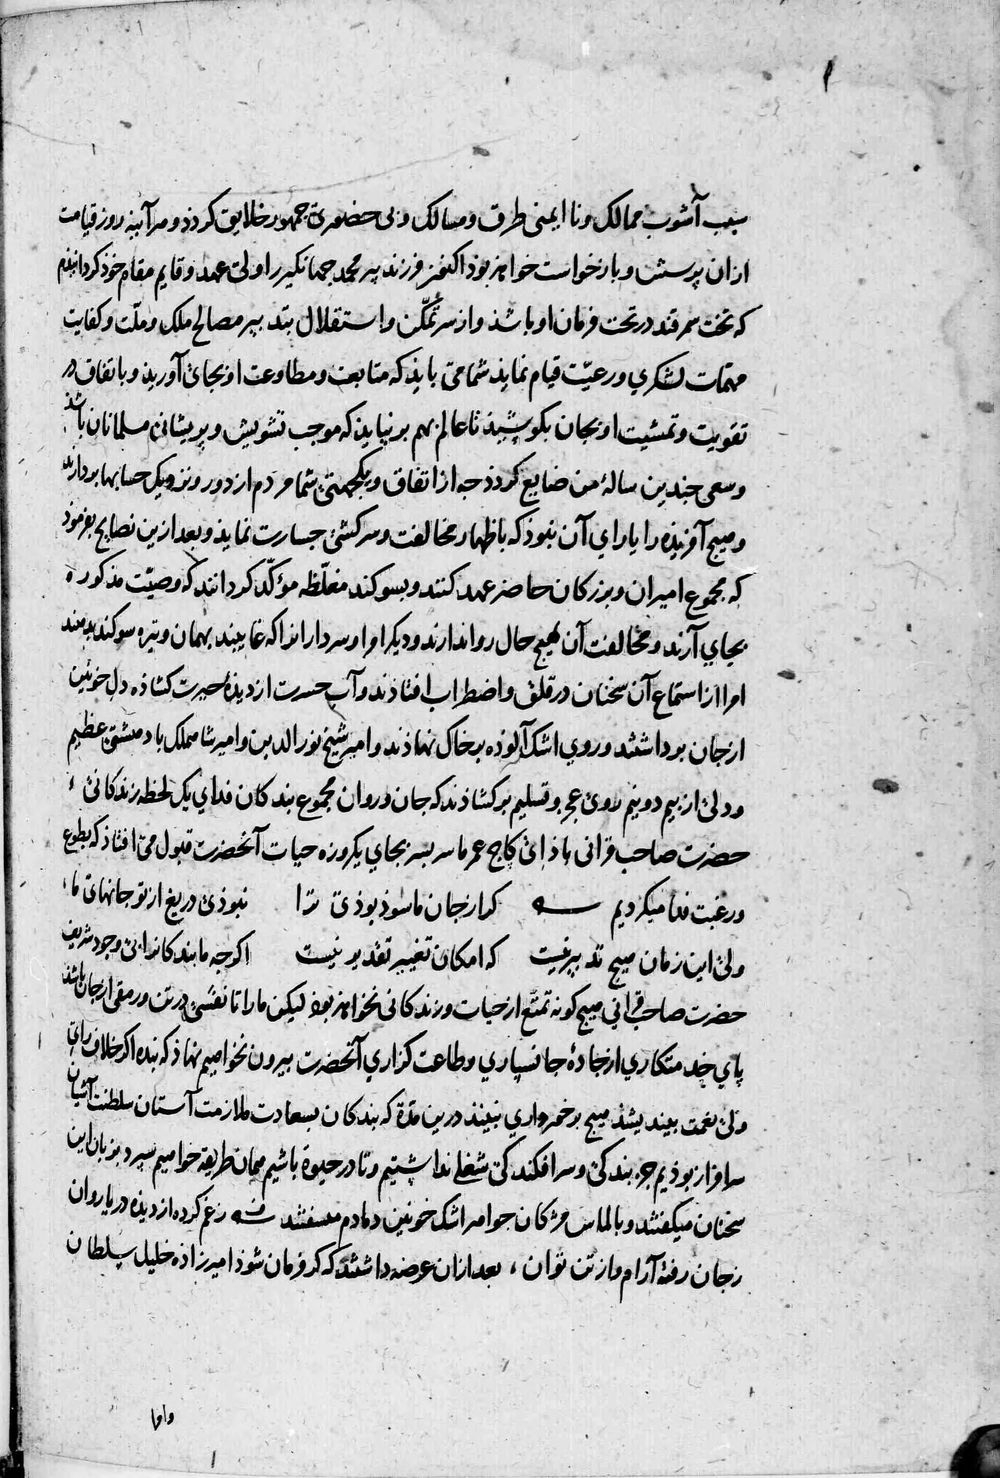 سبب آشوب ممالک و نا ایمنی طرق و مسالک و بی حضوری جمهور خلایق کردد و هر آینه روز قیامت
ازان پرسش و بازخواست خواهذ بوذ اکنون فرزند پیر محمد جهانکیر را ولی عهد و قایم مقام خوذ کردانیذم
که تخت سمرقند در تحت فرمان او باشذ و از سر تمکّن و استقلال بتدبیر مصالح ملک و ملّت و کفایت
مهمّات لشکری و رعیّت قیام نمایذ شما می بایذ که متابعت و مطاوعت او بجای آوریذ و باتفاق در
تقویت و تمشیت او بجان بکوشیذ تا عالم بهم بر نیایذ که موجب تشویش و پریشانی مسلمانان باشذ
و سعی جندین سالهٔ من ضایع کردذ جه از اتفاق و یکجهتی شما مردم از دور و نزدیک حسابها بردارند
و هیج آفریذه را یارای آن نبوذ که باظهار مخالفت و سرکشی جسارت نمایذ و بعد ازین نصایح بفرموذ
که مجموع امیران و بزرکان حاضر عهد کنند و بسوکند مغلّظه مؤکّد کردانند که وصیّت مذکوره
بجای آرند و مخالفت آن بهیج حال روا ندارند و دیکر امرا و سردارانرا که غایبند بهمان وتیره سوکند بدهند
امرا از استماع آن سخنان در قلق و اضطراب افتاذند و آب حسرت از دیذهٔ حیرت کشاذه دل خونین
از جان برداشتند و روی اشک آلوذه بر خاک نهاذند و امیر شیخ نور الدین و امیر شاهملک با دهشتی عظیم
و دلی از بیم دو نیم روی عجز و تسلیم برکشاذند که جان و روان مجموع بندکان فدای یک لحظه زندکانی
حضرت صاحب قرانی باذ ای کاج عمر ما سر بسر بجای یکروزه حیات آنحضرت قبول می افتاذ که بطوع
و رغبت فدا میکردیم کر از جان ما سوذ بوذی ترا نبوذی دریغ از تو جانهای ما
ولی این زمان هیج تدبیر نیست که امکان تغییر تقدیر نیست اکرجه ما بندکانرا بی وجود شریف
حضرت صاحب قرانی هیج کونه تمتّع از حیات و زندکانی نخواهذ بوذ لیکن ما را تا نفسی در تن و رمقی از جان باشذ
پای خدمتکاری از جادهٔ جانسپاری و طاعت کزاری آنحضرت بیرون نخواهیم نهاذ که بنده اکر خلاف رای
ولی نعمت بیندیشذ هیج برخورداری نبیند درین مدّة که بندکان بسعادت ملازمت آستان سلطنت آشیان
سرافراز بوذیم جز بندکی و سرافکندکی شغلی نداشتیم و تا در حیوة باشیم همان طریقه خواهیم سپرد بزبان این
سخنان میکفتند و بالماس مژکان جواهر اشک خونین دمادم میسفتند ز غم کرده از دیذه دریا روان
ز جان رفته آرام و از تن توان بعد ازان عرضه داشتند که کر فرمان شوذ امیرزاذه خلیل سلطان
و امرا